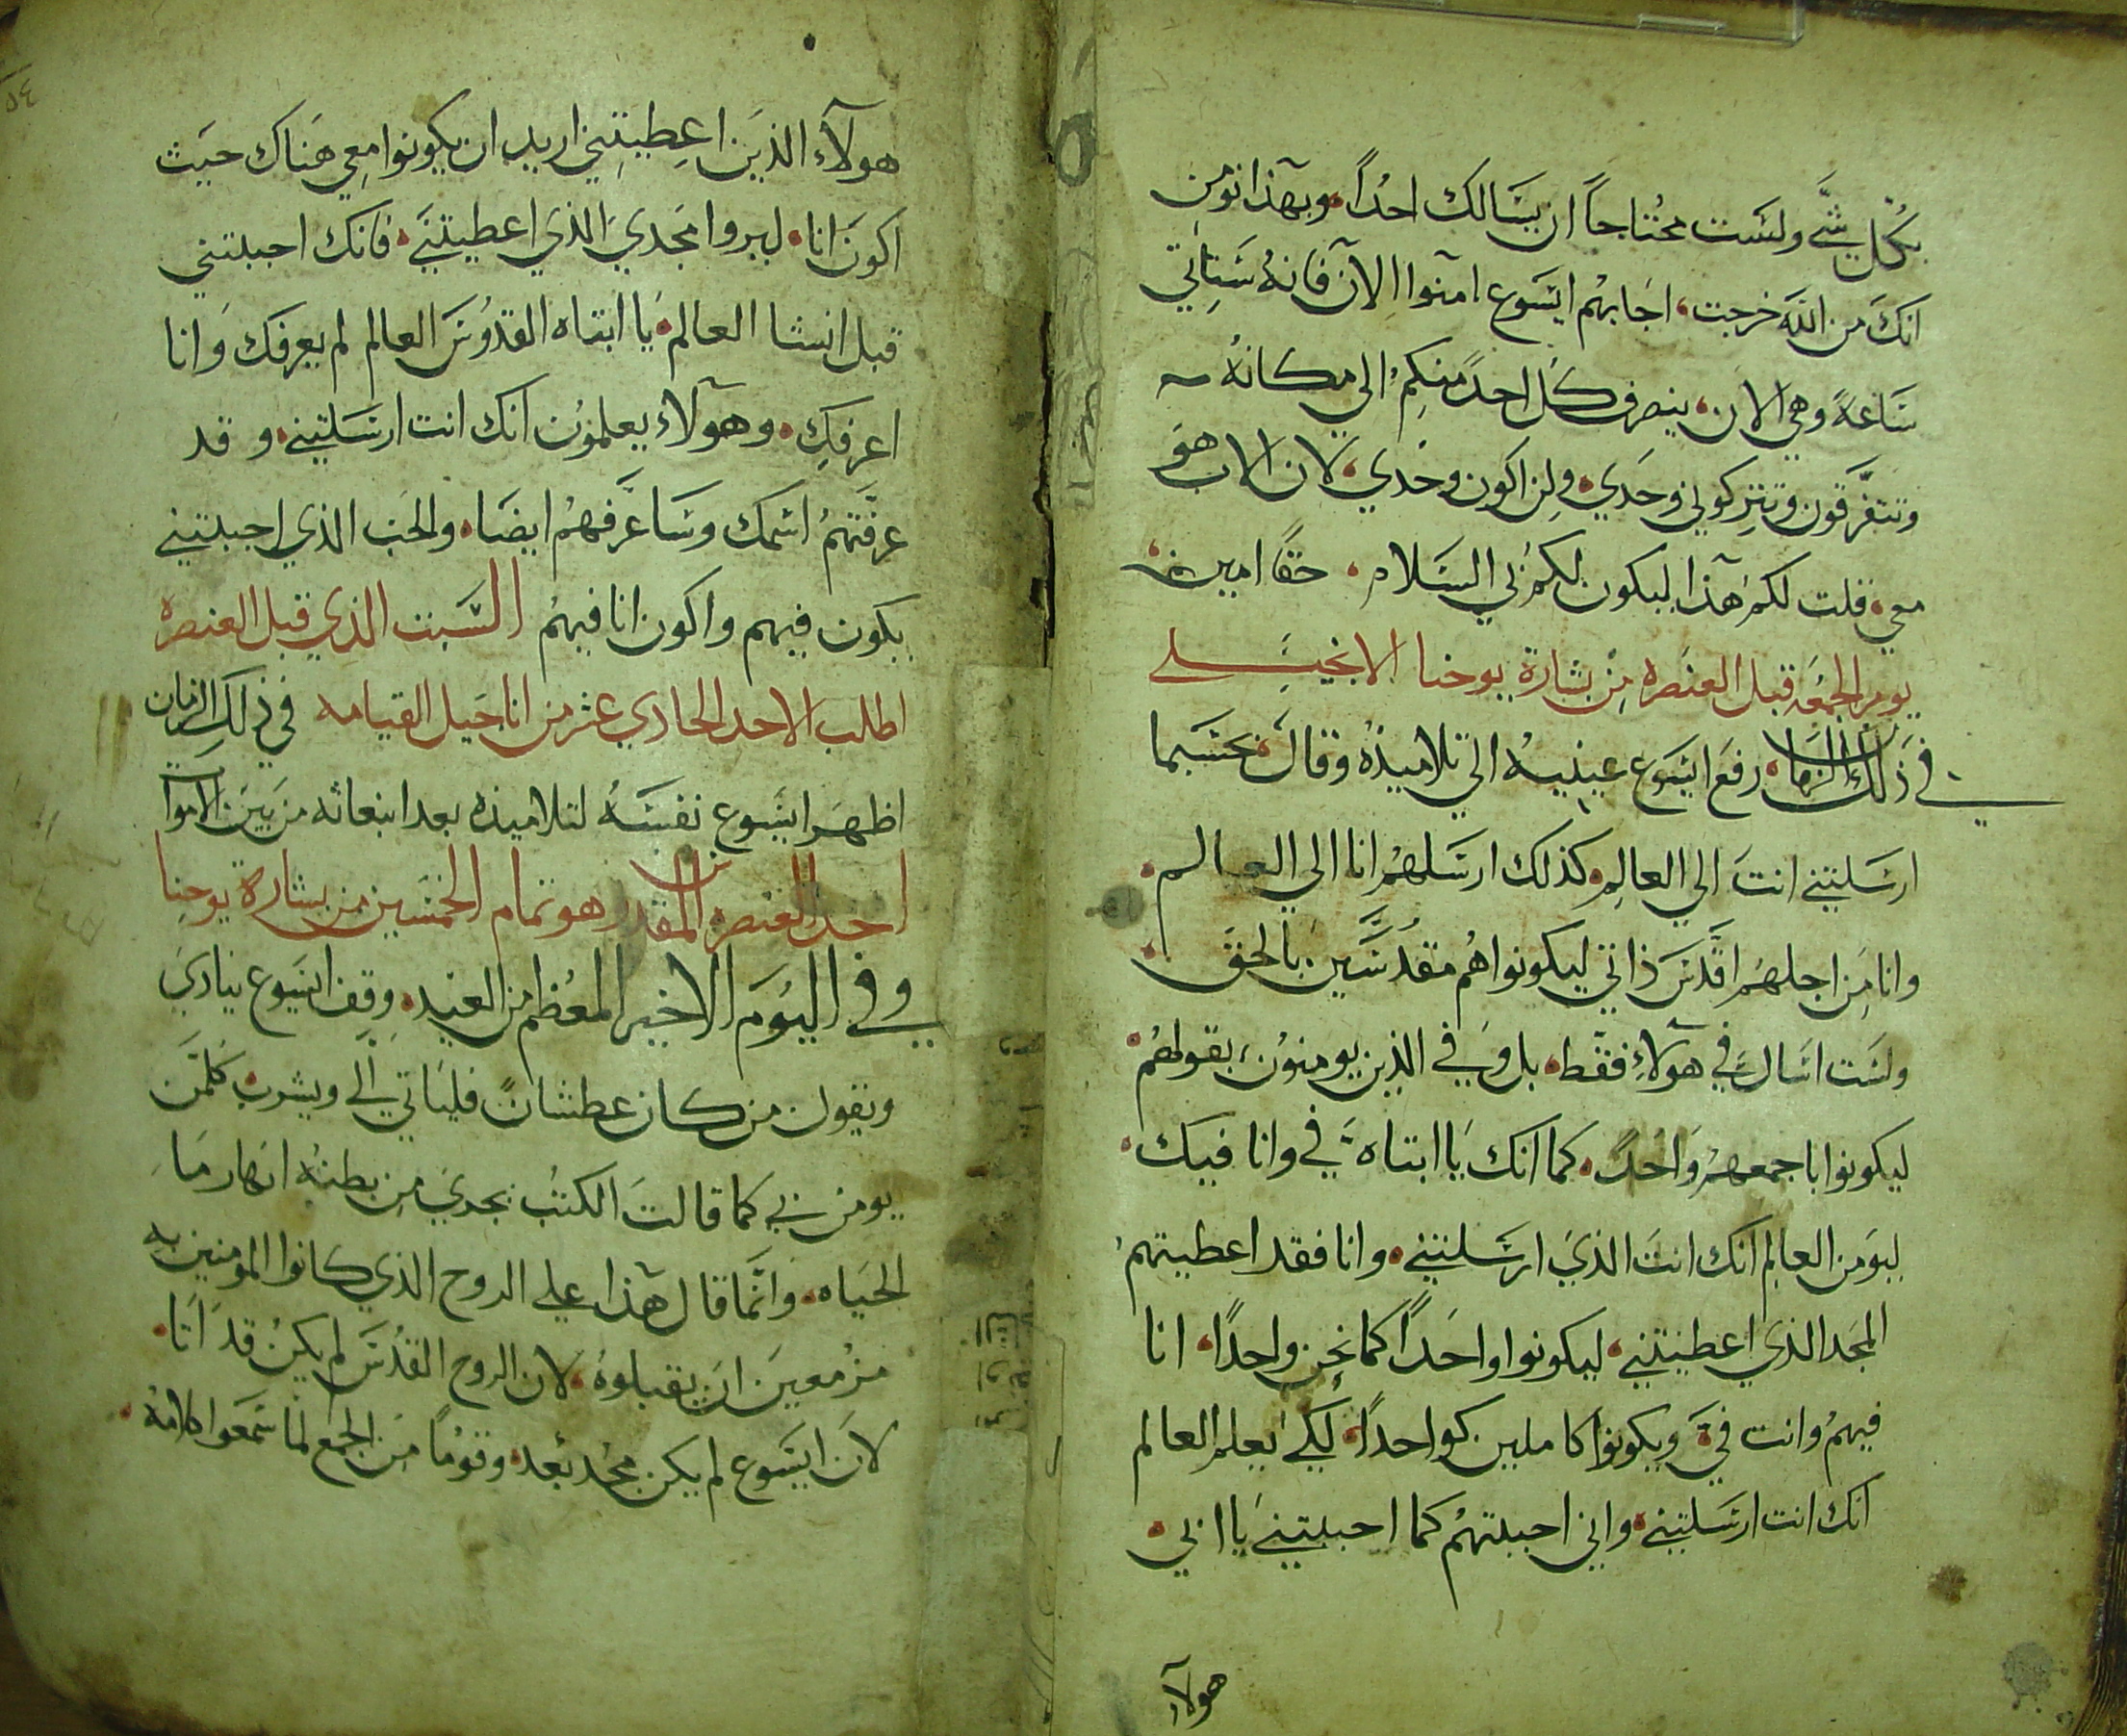 بكُل شَّي ولسَت محُتاجاً ان يسَالك احُداً، وبهَذا نومن
انكَ من اللهَ خرجت، اجَابهُم ايسَوع امنوا الآن فانهُ سَتِاتي
سَاعهً وهي الان، ينصرف كُل احدً منكِم الي مكانهُ
وتتفرَّقون وتتركوني وحَدي، ولن اكون وحَدي، لان الاب هوَ
معي، قلت لكم هَذا ليكون لكمُ بي السَلام، حقاً امين
يوم الجمُعه قبل العنصَره مِن بشارة يوحنا الانجيَلي
في ذَلك الزمان، رفعَ ايسَوع عينيهُ الي تلاميذهُ وقالَ، كحسَبما
ارسَلتني انتَ الي العالِم، كذلك ارسَلهُم انا الي العالم،
وانا مِن اجلهمُ اقَّدسَ ذاتي ليكونوا هُم مقدُسَّين بالحقَ،
ولسَت اسَال في هولآءِ فقَط، بل وفي الذِين يومنوُن بقولهمُ،
ليكونوا باجمعهمُ وَاحُدً، كما انك يَا ابتاه فيَّ وانا فيَك،
ليوَمن العالِم انك انتَ الذيَ ارسَلتني، وانا فقد اعطيتهمُ
المجَد الذي اعطيتني، ليكونوا واحَداً كما نحن واحداً، انا
فيهمُ وانت فيَّ، ويكونوا كاملين كواحداً، لكَي يعلم العالم
انك انت ارسَلتني، واني احببتهمُ كما احببتني يَا ابي،
هولآءِ
٥٤
هولآء الذيَن اعِطيتِني اريد ان يكونوا معِي هَناك حيَث
اكونَ انا، ليروا مَجديَ الذي اعطيتنَي، فانك احببتني
قبل انشا العالم، يَا ابتاه القدوُسَ العالم لم يعرفكَ وَانا
اعرفكِ، وهَولآء يعلموُن انك انت ارسَلتني، وقد
عرفَّتهمُ اسَمك وسَاعَرفهمُ ايضَا، والحَب الذي احببتني
يكون فيهم واكون انا فيهمُ السَبت الذِي قبل العنصره
اطلب الاحد الحادي عشر من اناجَيل القيامه في ذلك الزمان
اظهَر ايسَوع نفسَهُ لتلاميذه بعد انبعاثه من بَين الاموات
احد العنصره المقدس هو تمام الخمسَين من بشارة يوحنا
وفي اليُومَ الاخير المعُظم من العيد، وقف ايسَوع ينادي
ويقول من كان عطشانً فليَاتي اليَّ ويشرب، كلمَن
يومن بي كما قالت الكتُب تجري مِن بطنهُ انهار مَا
الحيَاه، وَانَّما قال هَذا علي الروح الذي كانوا المومنين به
مزُمعينَ ان يقبلوهُ، لان الروح القدُسَ لم يكن قدَ اتَا،
لانَ ايسَوع لم يكن مجُد بُعد، وقومُا مِن الجمَع لما سَمَعوا كلامهُ،